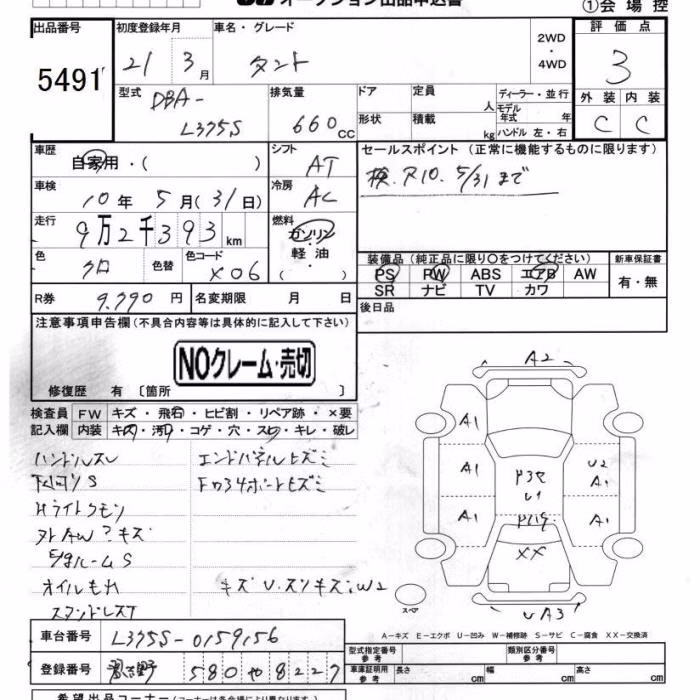 オークション出品申込書
①会場控
出品番号
5491
初度登録年月
21 3月
車名・グレード
タント
2WD
・
4WD
評価点
3
型式
DBA-
L375S
排気量
660cc
ドア
定員
人
形状
積載
kg
ディーラー・並行
モデル年式
年
ハンドル 左・右
外装
内装
C
C
車歴
自家用・( )
シフト
AT
セールスポイント (正常に機能するものに限ります)
検.R10.5/31まで
車検
10年5月(31日)
冷房
AC
走行
9万2千393km
燃料
ガソリン
軽油
( )
色
クロ
色替
色コード
X06
装備品 (純正品に限り○をつけてください)
PS PW ABS エアB AW
SR ナビ TV カワ
新車保証書
有・無
R券
9.790円
名変期限
月 日
後日品
注意事項申告欄(不具合内容等は具体的に記入して下さい)
NOクレーム・売切
修復歴 有〔箇所 〕
検査員
記入欄
FW キズ・飛石・ヒビ割・リペア跡・×要
内装 キズ・汚れ・コゲ・穴・スレ・キレ・破レ
ハンドルスレ
エンドパネルヒズミ
S
Hライトクモリ
キズ
ルームS
オイルもれ
W2
A2
A1
A1
A1
U2
A1
A1
U1
XX
UA3
スペア
A－キズ E－エクボ U－凹み W－補修跡 S－サビ C－腐食 XX－交換済
車台番号
L375S-0159156
登録番号
580 や 8227
型式指定番号
参考
類別区分番号
参考
車庫証明用
参考
長さ cm
幅 cm
高さ cm
希望出品コーナー